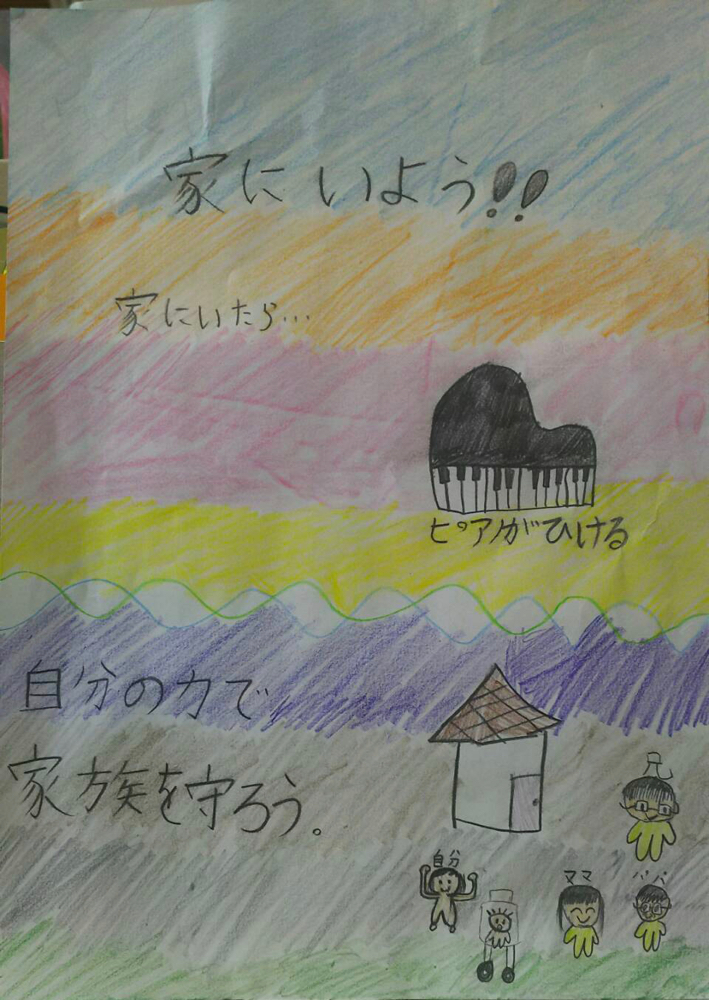 家にいよう!!
家にいたら…
ピアノがひける
自分の力で
家族を守ろう。
兄
自分
ママ
パパ